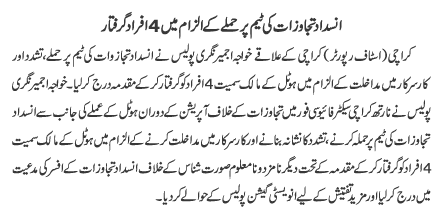 انسداد تجاوزات کی ٹیم پر حملے کے الزام میں 4 افراد گرفتار
کراچی (اسٹاف رپورٹر) کراچی کے علاقے خواجہ اجمیر نگری پولیس نے انسداد تجاوزات کی ٹیم پر حملے، تشدد اور
کار سرکار میں مداخلت کے الزام میں ہوٹل کے مالک سمیت 4 افراد کو گرفتار کر کے مقدمہ درج کر لیا۔ خواجہ اجمیر نگری
پولیس نے نارتھ کراچی سیکٹر فائیو سی فور میں تجاوزات کے خلاف آپریشن کے دوران ہوٹل کے عملے کی جانب سے انسداد
تجاوزات کی ٹیم پر حملہ کرنے، تشدد کا نشانہ بنانے اور کار سرکار میں مداخلت کرنے کے الزام میں ہوٹل کے مالک سمیت
4 افراد کو گرفتار کر کے مقدمہ کے تحت دیگر نامزد و نامعلوم صورت شناس کے خلاف انسداد تجاوزات کے افسر کی مدعیت
میں درج کر لیا اور مزید تفتیش کے لیے انویسٹی گیشن پولیس کے حوالے کر دیا۔